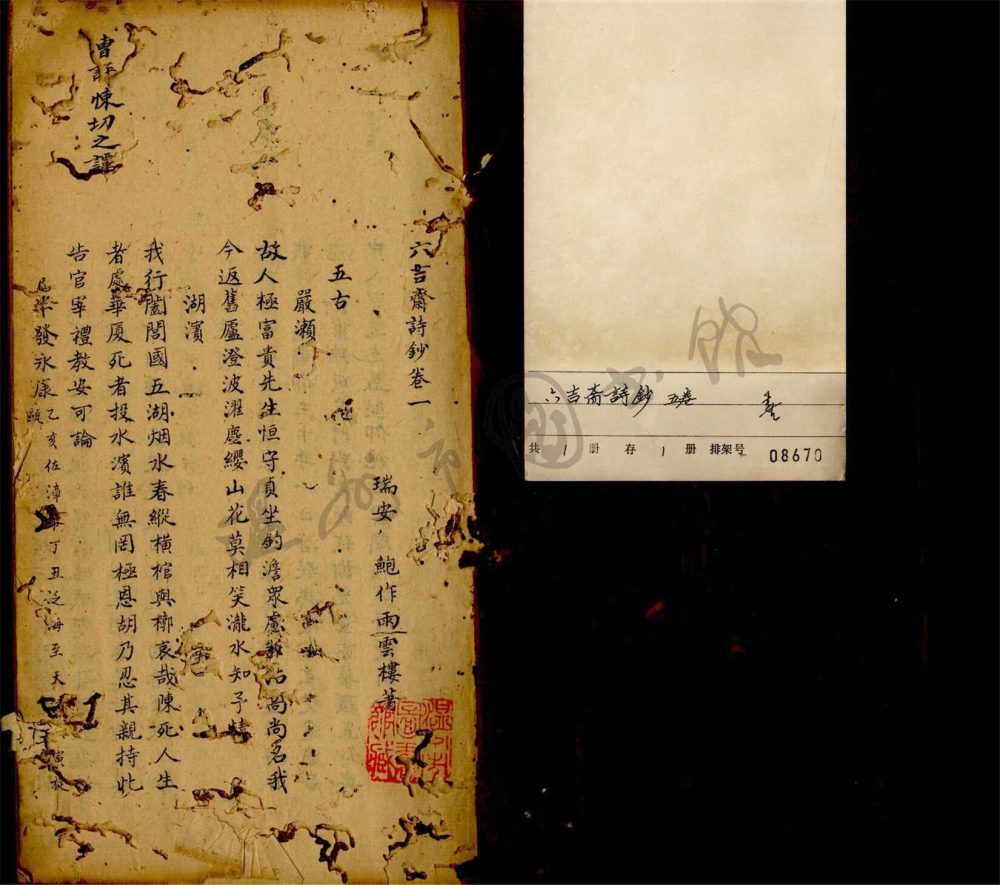 曹評悚切之謹
六吉齋詩鈔卷一
瑞安 鮑作雨雲樓著
五古
嚴瀨
故人極富貴先生恒守貞坐釣澹眾慮沽尚尚名我
今返舊廬澄波濯塵纓山花莫相笑瀧水知予情
湖濱
我行闔閭國五湖烟水春縱橫棺與槨哀哉陳死人生
者處華厦死者投水濱誰無罔極恩胡乃忍其親持此
告官宰禮教安可論
發永康 乙亥 丁丑泛海至天
溫州市圖書館藏
六吉斋詩鈔 五卷
共 1 册 存 1 册 排架号 08670
溫州市圖书館